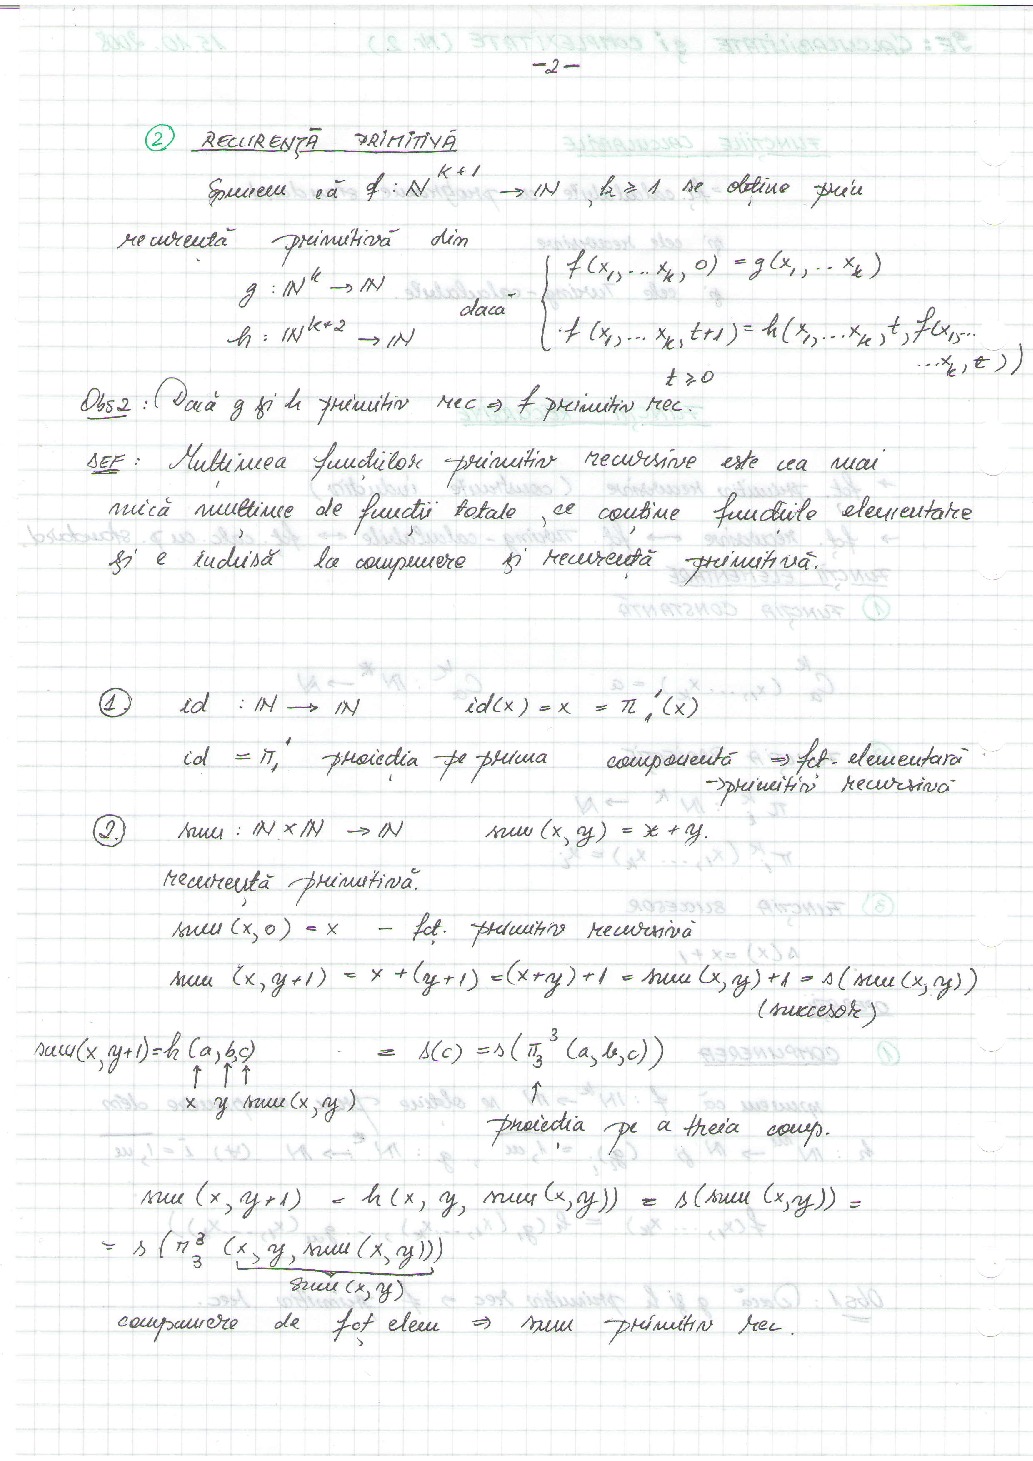 -2-
② RECURENȚĂ PRIMITIVĂ
Spunem că f : ℕ^{k+1} → ℕ, k ≥ 1 se obține prin
recurență primitivă din
g : ℕ^k → ℕ
h : ℕ^{k+2} → ℕ
dacă
{ f(x₁,...x_k, 0) = g(x₁,...x_k)
f(x₁,...x_k, t+1) = h(x₁,...x_k, t, f(x₁,...
...x_k, t))
t ≥ 0
Obs2 : Dacă g și h primitiv rec ⇒ f primitiv rec.
DEF : Mulțimea funcțiilor primitiv recursive este cea mai
mică mulțime de funcții totale, ce conține funcțiile elementare
și e închisă la compunere și recurență primitivă.
① id : ℕ → ℕ id(x) = x = π₁¹(x)
id = π₁¹ proiecția pe prima componentă ⇒ fct. elementară
→ primitiv recursivă
② sum : ℕ×ℕ → ℕ sum(x,y) = x+y.
recurență primitivă.
sum(x,0) = x – fct. primitiv recursivă
sum (x,y+1) = x+(y+1) = (x+y)+1 = sum(x,y)+1 = s(sum(x,y))
(succesor)
sum(x,y+1)=h(a,b,c) = s(c) = s(π₃³(a,b,c))
↑ ↑ ↑ ↑
x y sum(x,y)
proiecția pe a treia comp.
sum(x,y+1) = h(x, y, sum(x,y)) = s(sum(x,y)) =
= s(π₃³(x,y,sum(x,y)))
sum(x,y)
compunere de fct elem ⇒ sum primitiv rec.